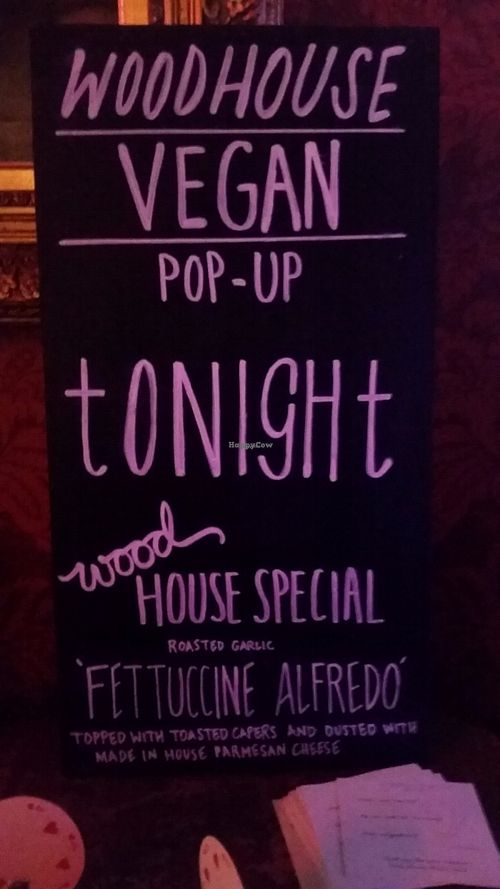 WOODHOUSE
VEGAN
POP-UP
tONIGHt
HappyCow
wood
HOUSE SPECIAL
ROASTED GARLIC
'FETTUCCINE ALFREDO'
TOPPED WITH TOASTED CAPERS AND DUSTED WITH
MADE IN HOUSE PARMESAN CHEESE